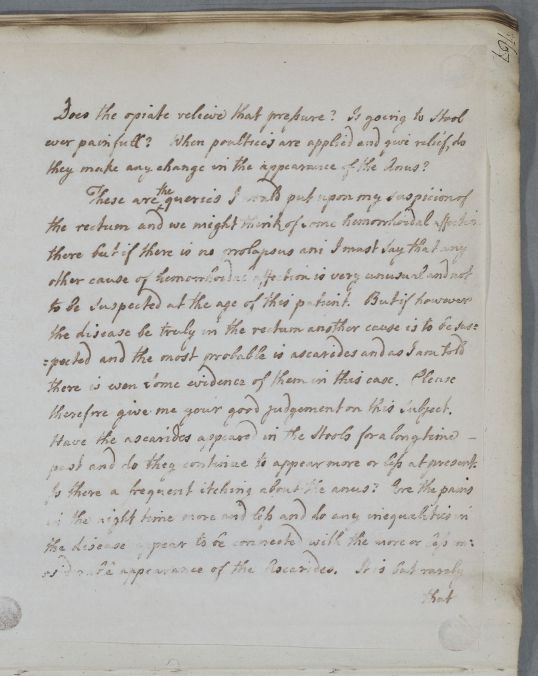 167
Does the opiate relieve that pressure? Is going to Stool
ever painfull? When poultices are applied and give relief, do
they make any change in the appearance of the Anus?
These are the queries I would put upon my suspicion of
the rectum and we might think of some hemorrhoidal affection
there but if there is no prolapsus ani I must say that any
other cause of hemorrhoidal affection is very unusual and not
to be suspected at the age of this patient. But if however
the disease be truly in the rectum another cause is to be sus=
=pected and the most probable is ascarides and as I am told
there is even some evidence of them in this case. Please
therefore give me your good judgement on this subject.
Have the ascarides appeared in the Stools for a long time
past and do they continue to appear more or less at present.
Is there a frequent itching about the anus? Are the pains
in the night time more and less and do any inequalities in
the disease appear to be connected with the more or less
appearance of the Ascarides. It is but rarely
that